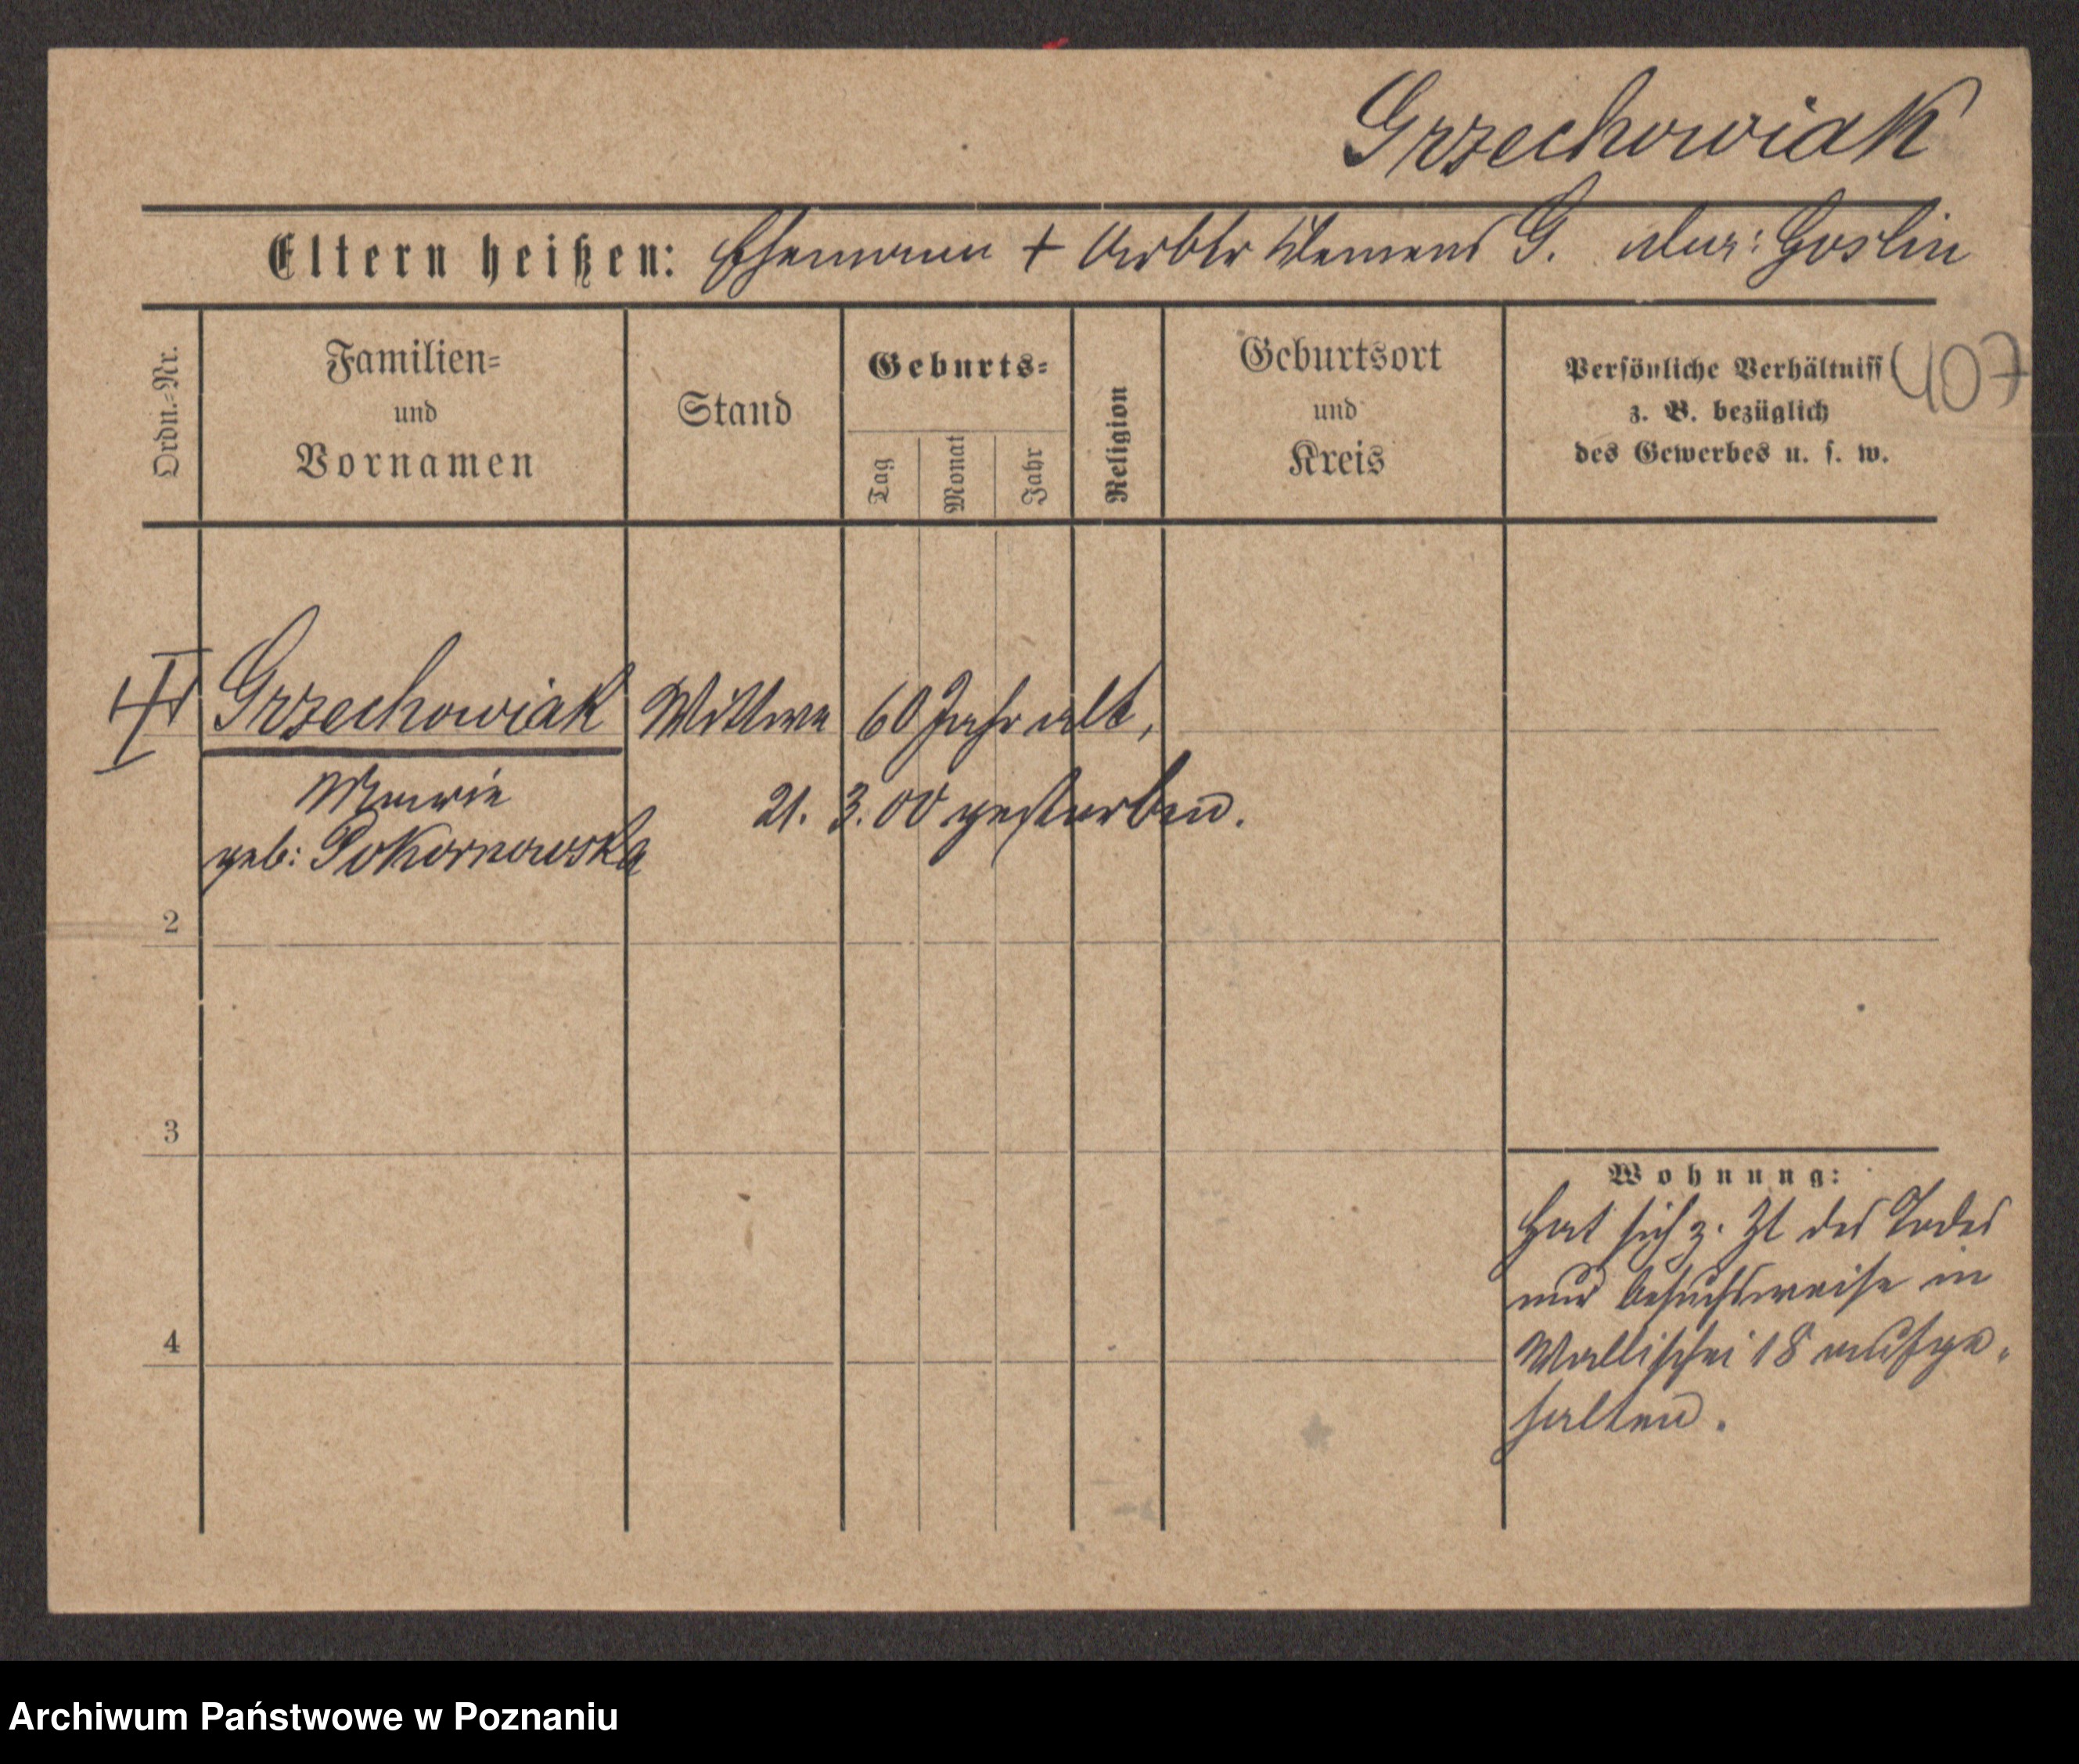 Grzechowiak
Eltern heißen: Ehemann † Arbtr Clemens G. Goslin
Ordn.-Nr.
Familien-
und
Vornamen
Stand
Geburts-
Tag
Monat
Jahr
Religion
Geburtsort
und
Kreis
Persönliche Verhältniss
z. B. bezüglich
des Gewerbes u. s. w.
407
Grzechowiak Wittwe 60 Jahr alt,
Marie
21. 3. 00 gestorben.
geb: Pokornowska
2
3
4
Wohnung:
Hat sich z. Zt des Todes
nur besuchsweise in
Wallischei 18 aufge-
halten.
Archiwum Państwowe w Poznaniu